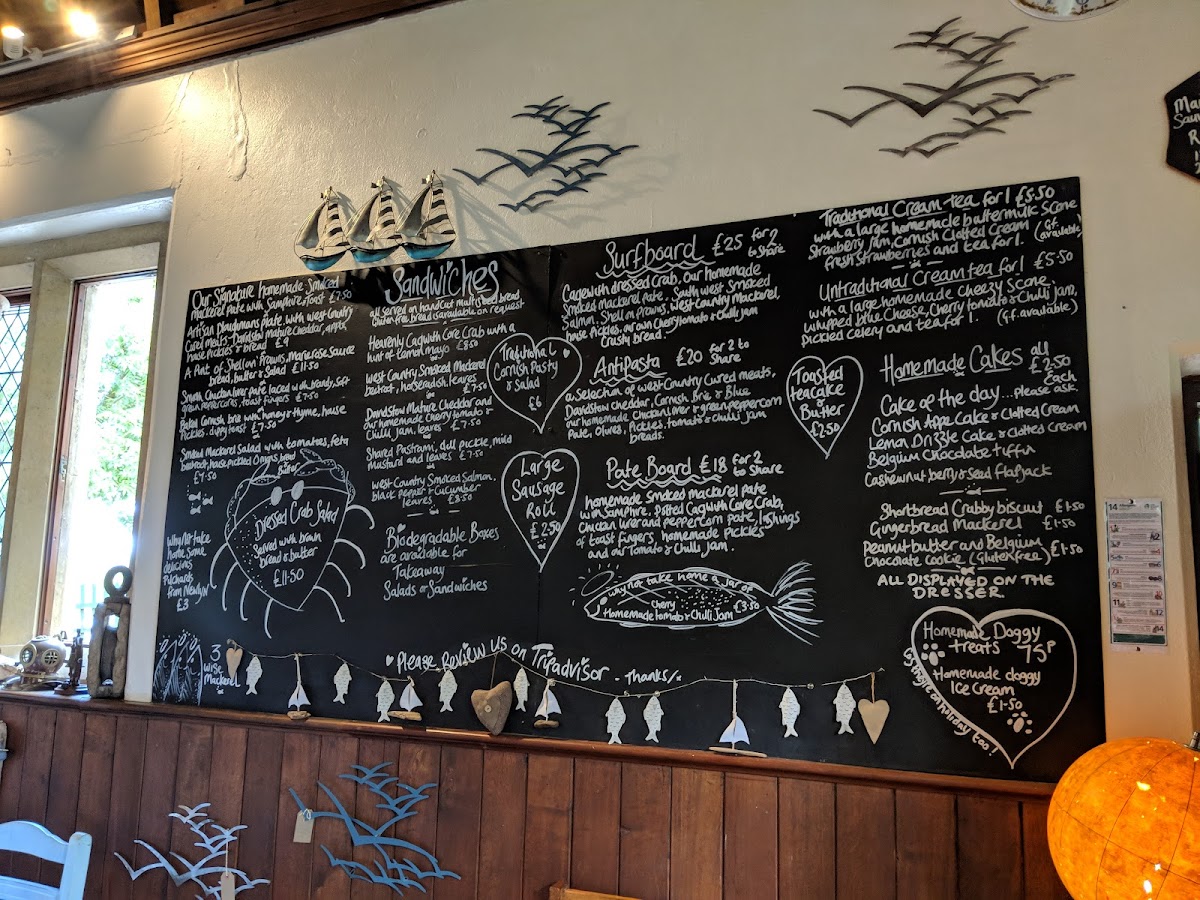 Our Signature homemade Smoked
Mackerel pate with Samphire & toast £7.50
Artisan Ploughmans plate with West Country
Cured Meats, Davidstow Mature Cheddar, apple,
house Pickles & bread £9
A Pint of Shell on Prawns, Marie rose Sauce
bread, butter & Salad £11.50
Smooth Chicken liver pate laced with brandy, soft
green peppercorns, toast fingers £7.50
Baked Cornish brie with honey & thyme, house
Pickles, dippy toast £7.50
Smoked Mackerel Salad with tomatoes, feta
beetroot, house pickled Onions, bread
butter
£7.50
Dressed Crab Salad
Served with brown
bread & butter
£11.50
Why not take
home some
delicious
Pilchards
from Newlyn
£3
3
Wise
Mackerel
Sandwiches
all served on handcut multiseed bread
Gluten free bread is available on request
Heavenly Cagwith Core Crab with a
hint of Lemon mayo £8.50
West Country Smoked Mackerel
beetroot, horseradish, leaves £7.50
Davidstow Mature Cheddar and
our homemade Cherry tomato &
Chilli Jam, leaves £7.50
Shaved Pastrami, dill pickle, mild
Mustard and leaves £7.50
West Country Smoked Salmon,
black pepper & Cucumber
leaves £8.50
Biodegradable Boxes
are available for
Takeaway
Salads or Sandwiches
Traditional
Cornish Pasty
& Salad
£6
Large
Sausage
Roll
£2.50
Surfboard £25 for 2
to Share
Cagwith dressed Crab, Our homemade
Smoked Mackerel Pate, South West Smoked
Salmon, Shell on Prawns, West Country Mackerel,
house Pickles, our own Cherry tomato & Chilli Jam
Crusty bread.
Antipasta £20 for 2 to
Share
a Selection of West Country Cured meats,
Davidstow Cheddar, Cornish Brie & Blue
our homemade Chicken liver & green peppercorn
Pate, Olives, Pickles, tomato & Chilli Jam
breads.
Pate Board £18 for 2
to Share
homemade Smoked Mackerel pate
with Samphire, Potted Cagwith Core Crab,
Chicken liver and peppercorn pate, lashings
of toast fingers, homemade pickles
and our Tomato & Chilli Jam.
Why not take home a Jar of
Cherry
Homemade tomato & Chilli Jam £3.50
Please Review us on Tripadvisor - Thanks/x
Toasted
Teacake
&
Butter
£2.50
Traditional Cream tea for 1 £5.50
with a large homemade buttermilk Scone
Strawberry Jam, Cornish Clotted Cream (Gf.
fresh Strawberries and tea for 1. available)
Untraditional Cream tea for 1 £5.50
with a large homemade Cheezy Scone,
whipped blue Cheese, Cherry tomato & Chilli Jam,
Pickled celery and tea for 1. (G.f. available)
Homemade Cakes all
£2.50
each
Cake of the day... please ask
Cornish Apple Cake & Clotted Cream
Lemon Drizzle Cake & Clotted Cream
Belgium Chocolate Tuffin
Cashewnut berry & Seed flapJack
Shortbread Crabby biscuit £1.50
Gingerbread Mackerel £1.50
Peanut butter and Belgium
Chocolate Cookie (Gluten free) £1.50
ALL DISPLAYED ON THE
DRESSER
Homemade Doggy
treats 75p
Homemade doggy
Ice Cream
£1.50
14